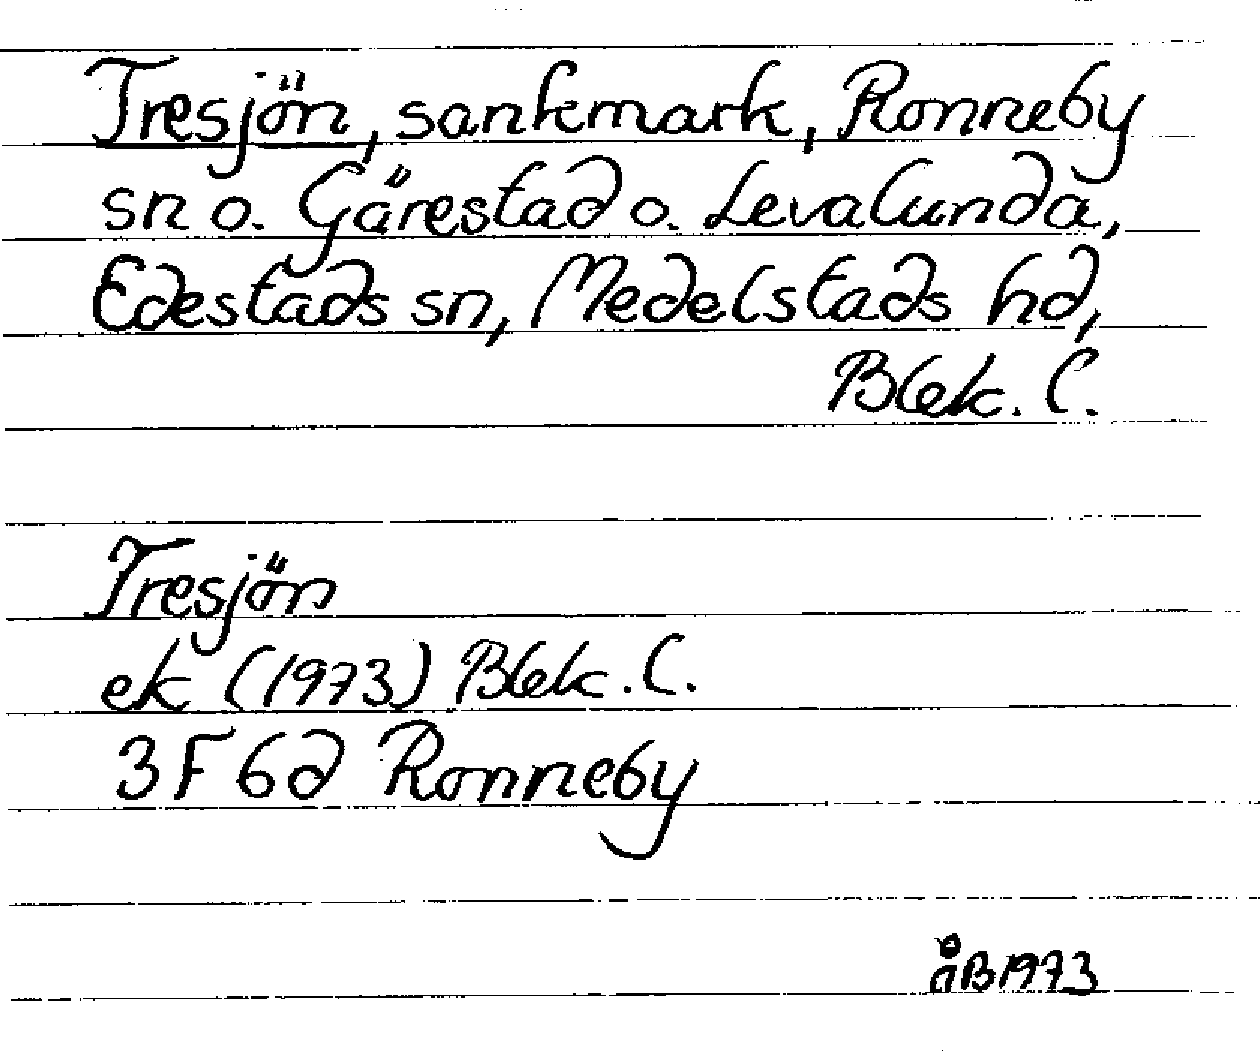 Tresjön, sankmark, Ronneby
sn o. Gärestad o. Levalunda,
Edestads sn, Medelstads hd,
Blek. l.
Tresjön
ek (1973) Blek. l.
3F6d Ronneby
åB1973